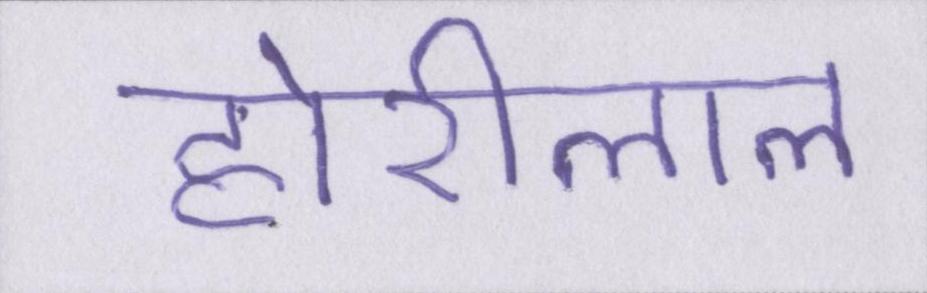 होरीलाल